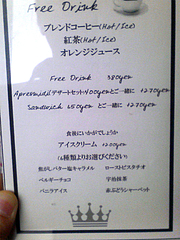 Free Drink
ブレンドコーヒー(Hot/Ice)
紅茶(Hot/Ice)
オレンジジュース
Free Drink 380yen
Apresmidiデザートセット400yenとご一緒に +270yen
Sandwich 650yenとご一緒に +270yen
食後にいかがでしょうか
アイスクリーム 200yen
(6種類よりお選びください)
焦がしバター塩キャラメル ローストピスタチオ
ベルギーチョコ 宇治抹茶
バニラアイス 赤ぶどうシャーベット